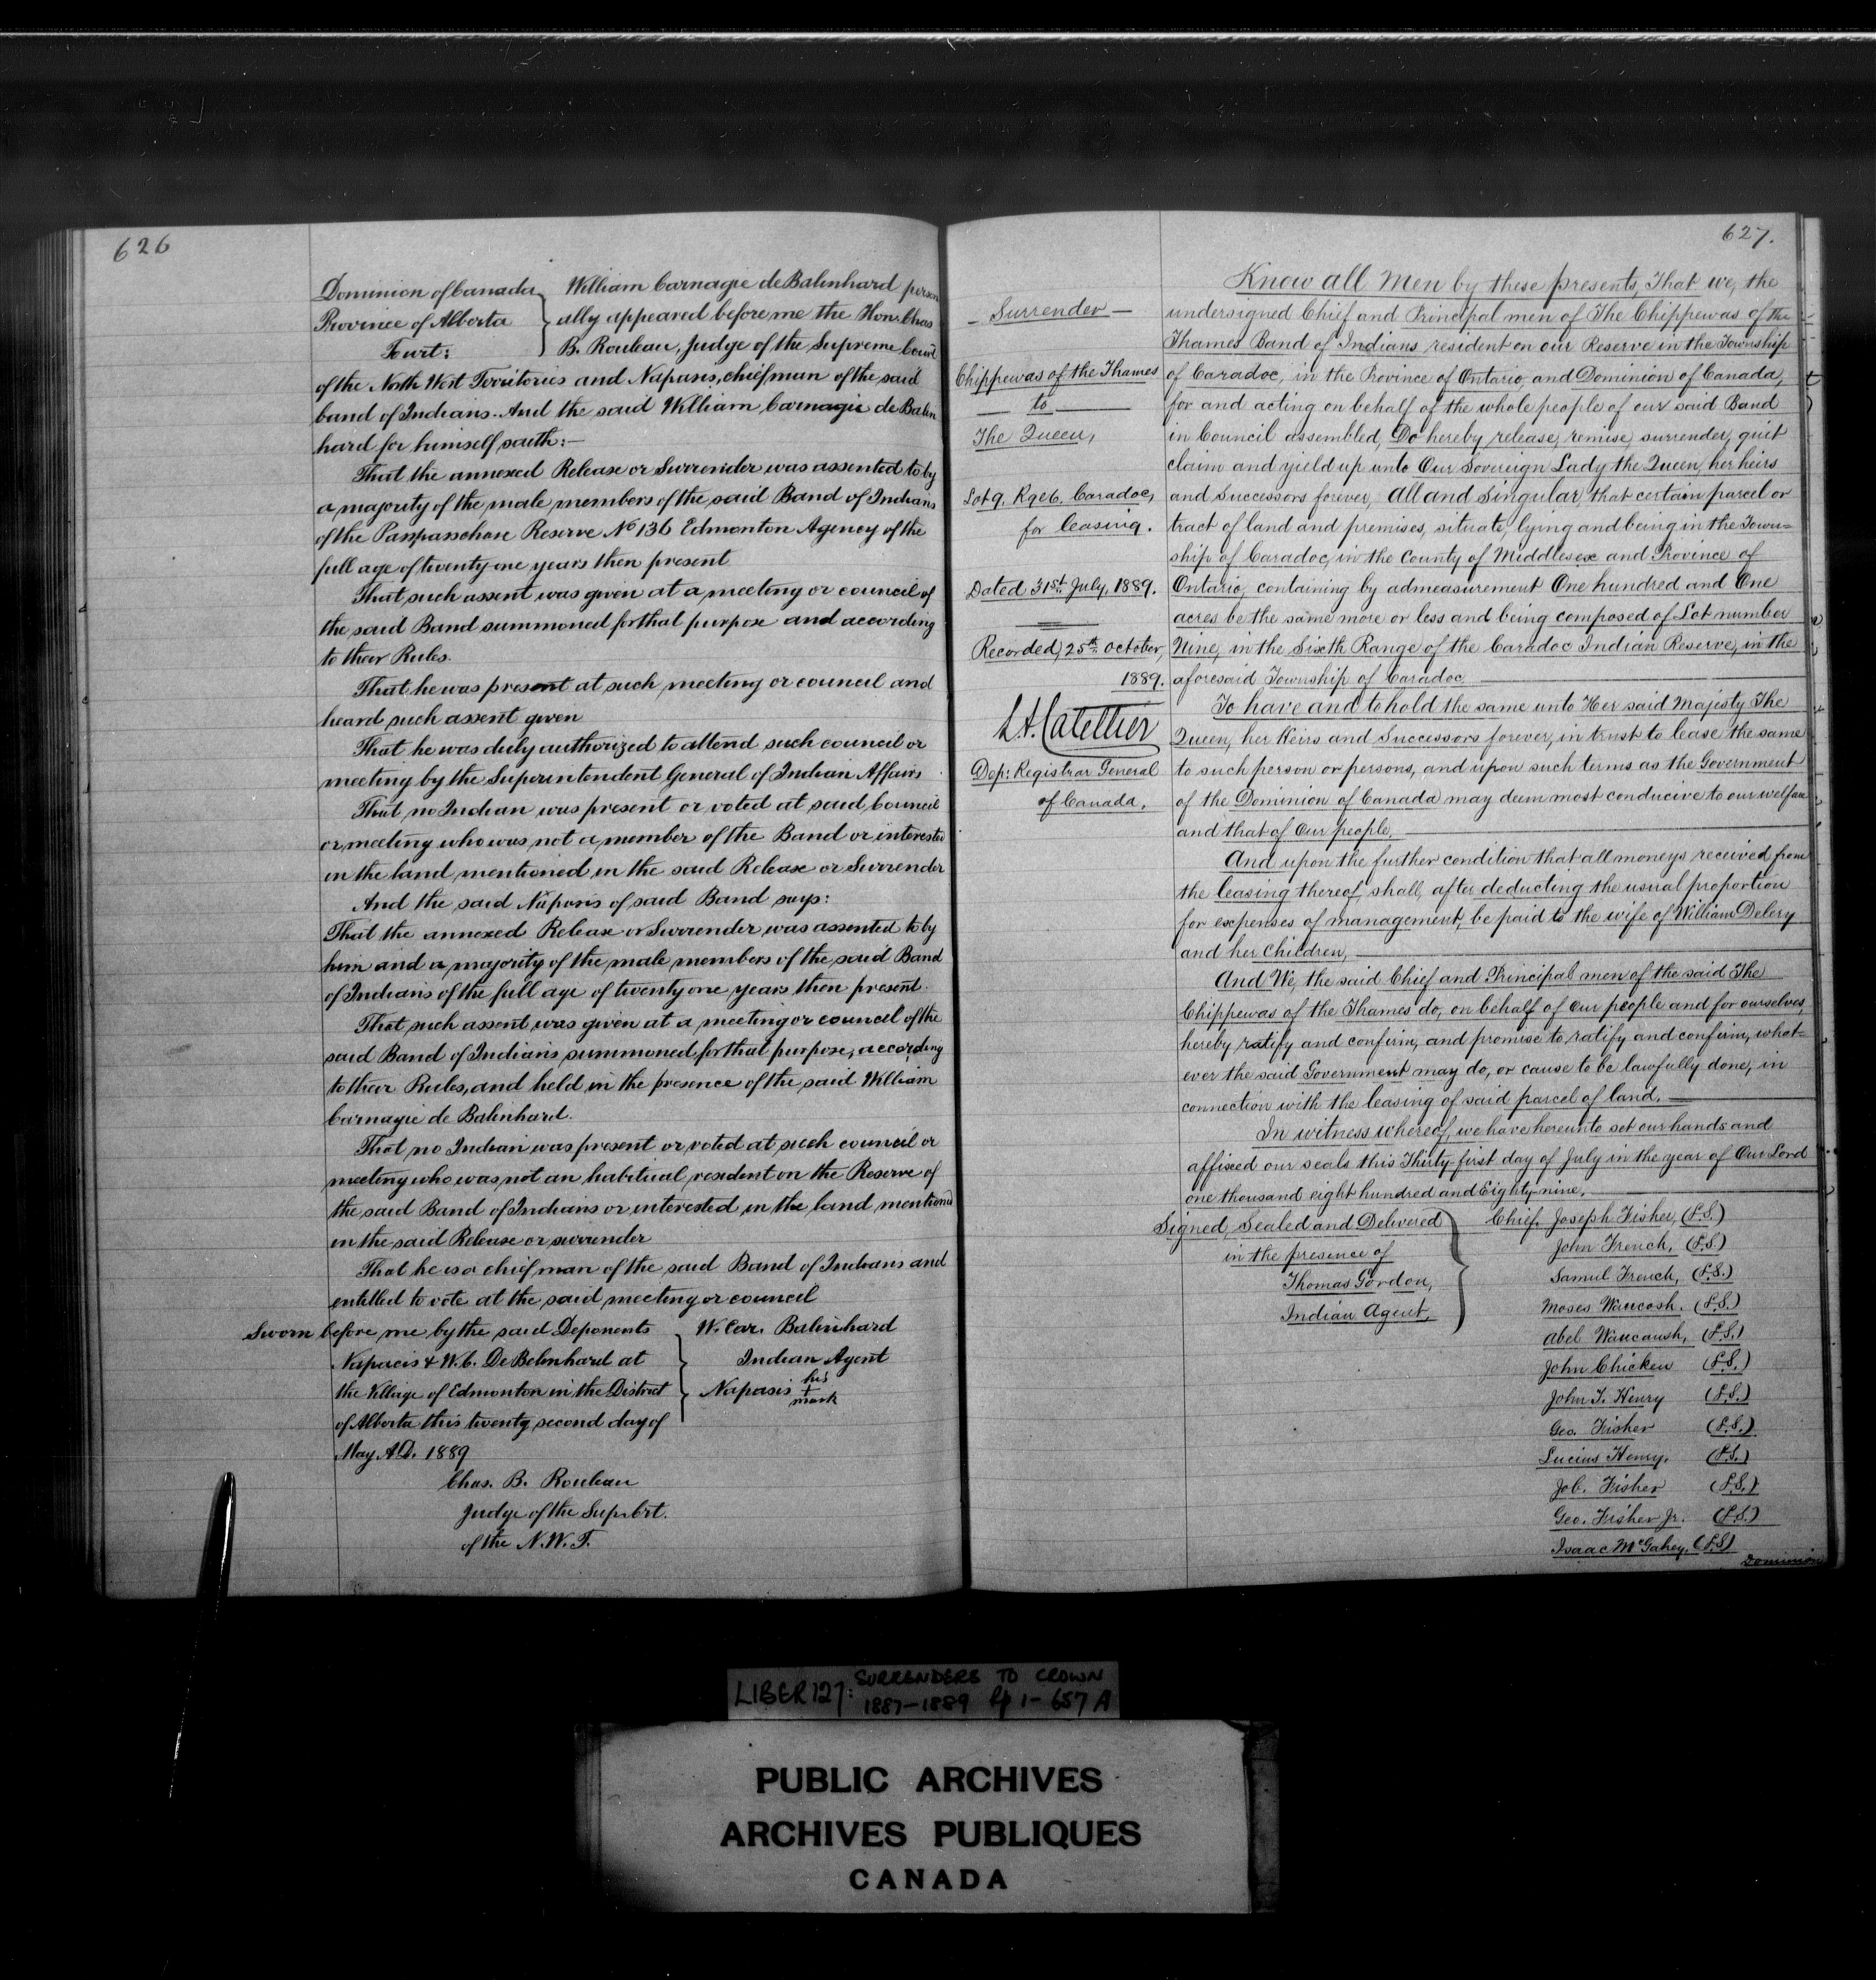 626
Dominion of Canada
Province of Alberta
To wit:
William Carnagie de Balinhard person
ally appeared before me the Hon. Chas
B. Rouleau, Judge of the Supreme Court
of the North West Territories and Napasis, chief man of the said
band of Indians. And the said William Carnagie de Balin
hard for himself saith:—
That the annexed Release or Surrender was assented to by
a majority of the male members of the said Band of Indians
of the Passpasschase Reserve No 136 Edmonton Agency of the
full age of twenty one years then present
That such assent was given at a meeting or council of
the said Band summoned for that purpose and according
to their Rules.
That he was present at such meeting or council and
heard such assent given
That he was duly authorized to attend such council or
meeting by the Superintendent General of Indian Affairs
That no Indian was present or voted at said Council
or meeting who was not a member of the Band or interested
in the land mentioned in the said Release or Surrender
And the said Napasis of said Band says:
That the annexed Release or Surrender was assented to by
him and a majority of the male members of the said Band
of Indians of the full age of twenty one years then present.
That such assent was given at a meeting or council of the
said Band of Indians summoned for that purpose, according
to their Rules, and held in the presence of the said William
Carnagie de Balinhard.
That no Indian was present or voted at such council or
meeting who was not an habitual resident on the Reserve of
the said Band of Indians or interested in the land mentioned
in the said Release or surrender
That he is a chief man of the said Band of Indians and
entitled to vote at the said meeting or council
Sworn before me by the said Deponents
Napacis & W. C. De Belinhard at
the Village of Edmonton in the District
of Alberta this twenty second day of
May A.D. 1889
W. Car. Balinhard
Indian Agent
Napasis his + mark
Chas. B. Rouleau
Judge of the Sup. Crt.
of the N. W. T.
627.
Surrender
Chippewas of the Thames
to
The Queen,
Lot 9, Rge 6, Caradoc,
for leasing.
Dated 31st July, 1889.
Recorded, 25th October,
1889.
L. A. Catellier
Dep: Registrar General
of Canada,
Know all Men by these presents, That we, the
undersigned Chief and Principal men of The Chippewas of the
Thames Band of Indians resident on our Reserve in the Township
of Caradoc, in the Province of Ontario and Dominion of Canada,
for and acting on behalf of the whole people of our said Band
in Council assembled, Do hereby release, remise, surrender, quit
claim and yield up unto Our Sovereign Lady the Queen, her heirs
and Successors forever, All and Singular, that certain parcel or
tract of land and premises, situate, lying and being in the Town=
ship of Caradoc, in the County of Middlesex and Province of
Ontario, containing by admeasurement One hundred and One
acres be the same more or less and being composed of Lot number
Nine, in the Sixth Range of the Caradoc Indian Reserve, in the
aforesaid Township of Caradoc
To have and to hold the same unto Her said Majesty The
Queen, her Heirs and Successors forever, in trust to lease the same
to such person or persons, and upon such terms as the Government
of the Dominion of Canada may deem most conducive to our welfare
and that of Our people,
And upon the further condition that all moneys received from
the leasing thereof, shall, after deducting the usual proportion
for expenses of management, be paid to the wife of William Delery
and her children,
And We, the said Chief and Principal men of the said The
Chippewas of the Thames do, on behalf of Our people and for ourselves,
hereby ratify and confirm, and promise to ratify and confirm, what-
ever the said Government may do, or cause to be lawfully done, in
connection with the leasing of said parcel of land.
In witness whereof, we have hereunto set our hands and
affixed our seals this Thirty-first day of July in the year of Our Lord
one thousand eight hundred and Eighty-nine.
Signed, Sealed and Delivered
in the presence of
Thomas Gordon,
Indian Agent,
Chief. Joseph Fisher, (L.S.)
John French, (L.S.)
Samul French, (L.S.)
Moses Waucosh. (L.S.)
Abel Waucaush, (L.S.)
John Chicken (L.S.)
John T. Henry (L.S.)
Geo. Fisher (L.S.)
Lucius Henry. (L.S.)
Job. Fisher (L.S.)
Geo. Fisher Jr. (L.S.)
Isaac McGahey. (L.S.)
Dominion
LIBER 127: SURRENDERS TO CROWN
1887–1889 pp 1–657A
PUBLIC ARCHIVES
ARCHIVES PUBLIQUES
CANADA